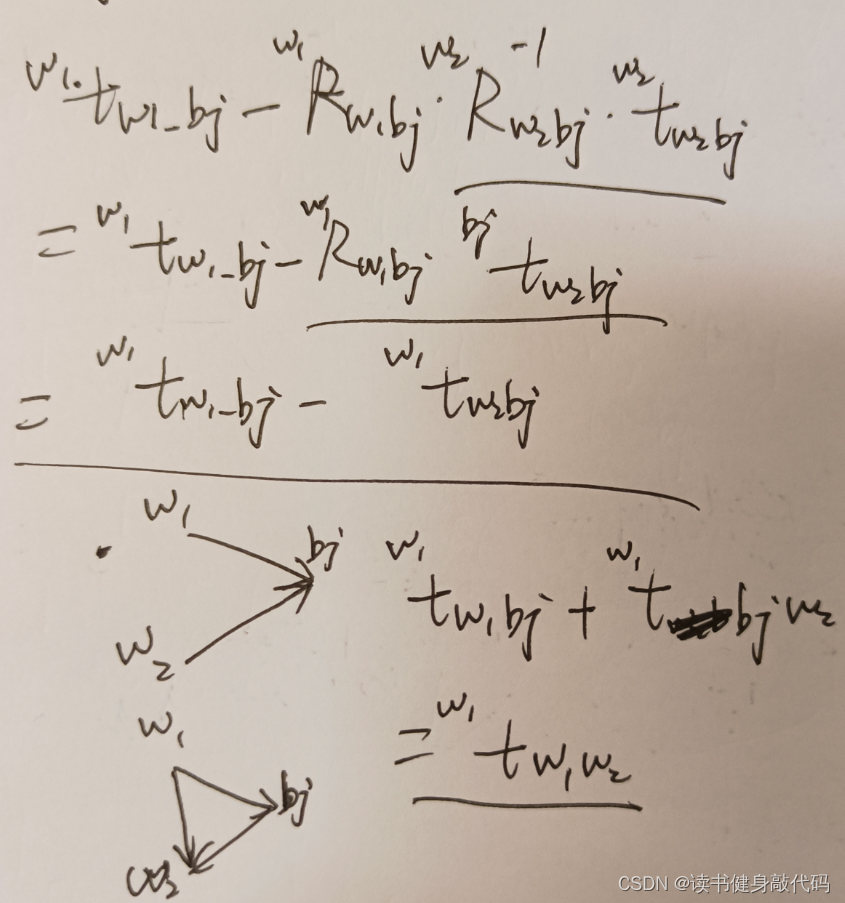 w₁ t w1_bj − w₁ R w₁bj · w₂ R w₂bj −1 · w₂ t w₂bj
= w₁ t w₁_bj − w₁ R w₁bj bj t w₂bj
= w₁ t w₁_bj − w₁ t w₂bj
w₁
bj
w₂
w₁ t w₁bj + w₁ t bj w₂
= w₁ t w₁w₂
w₁
bj
w₂
CSDN @读书健身敲代码